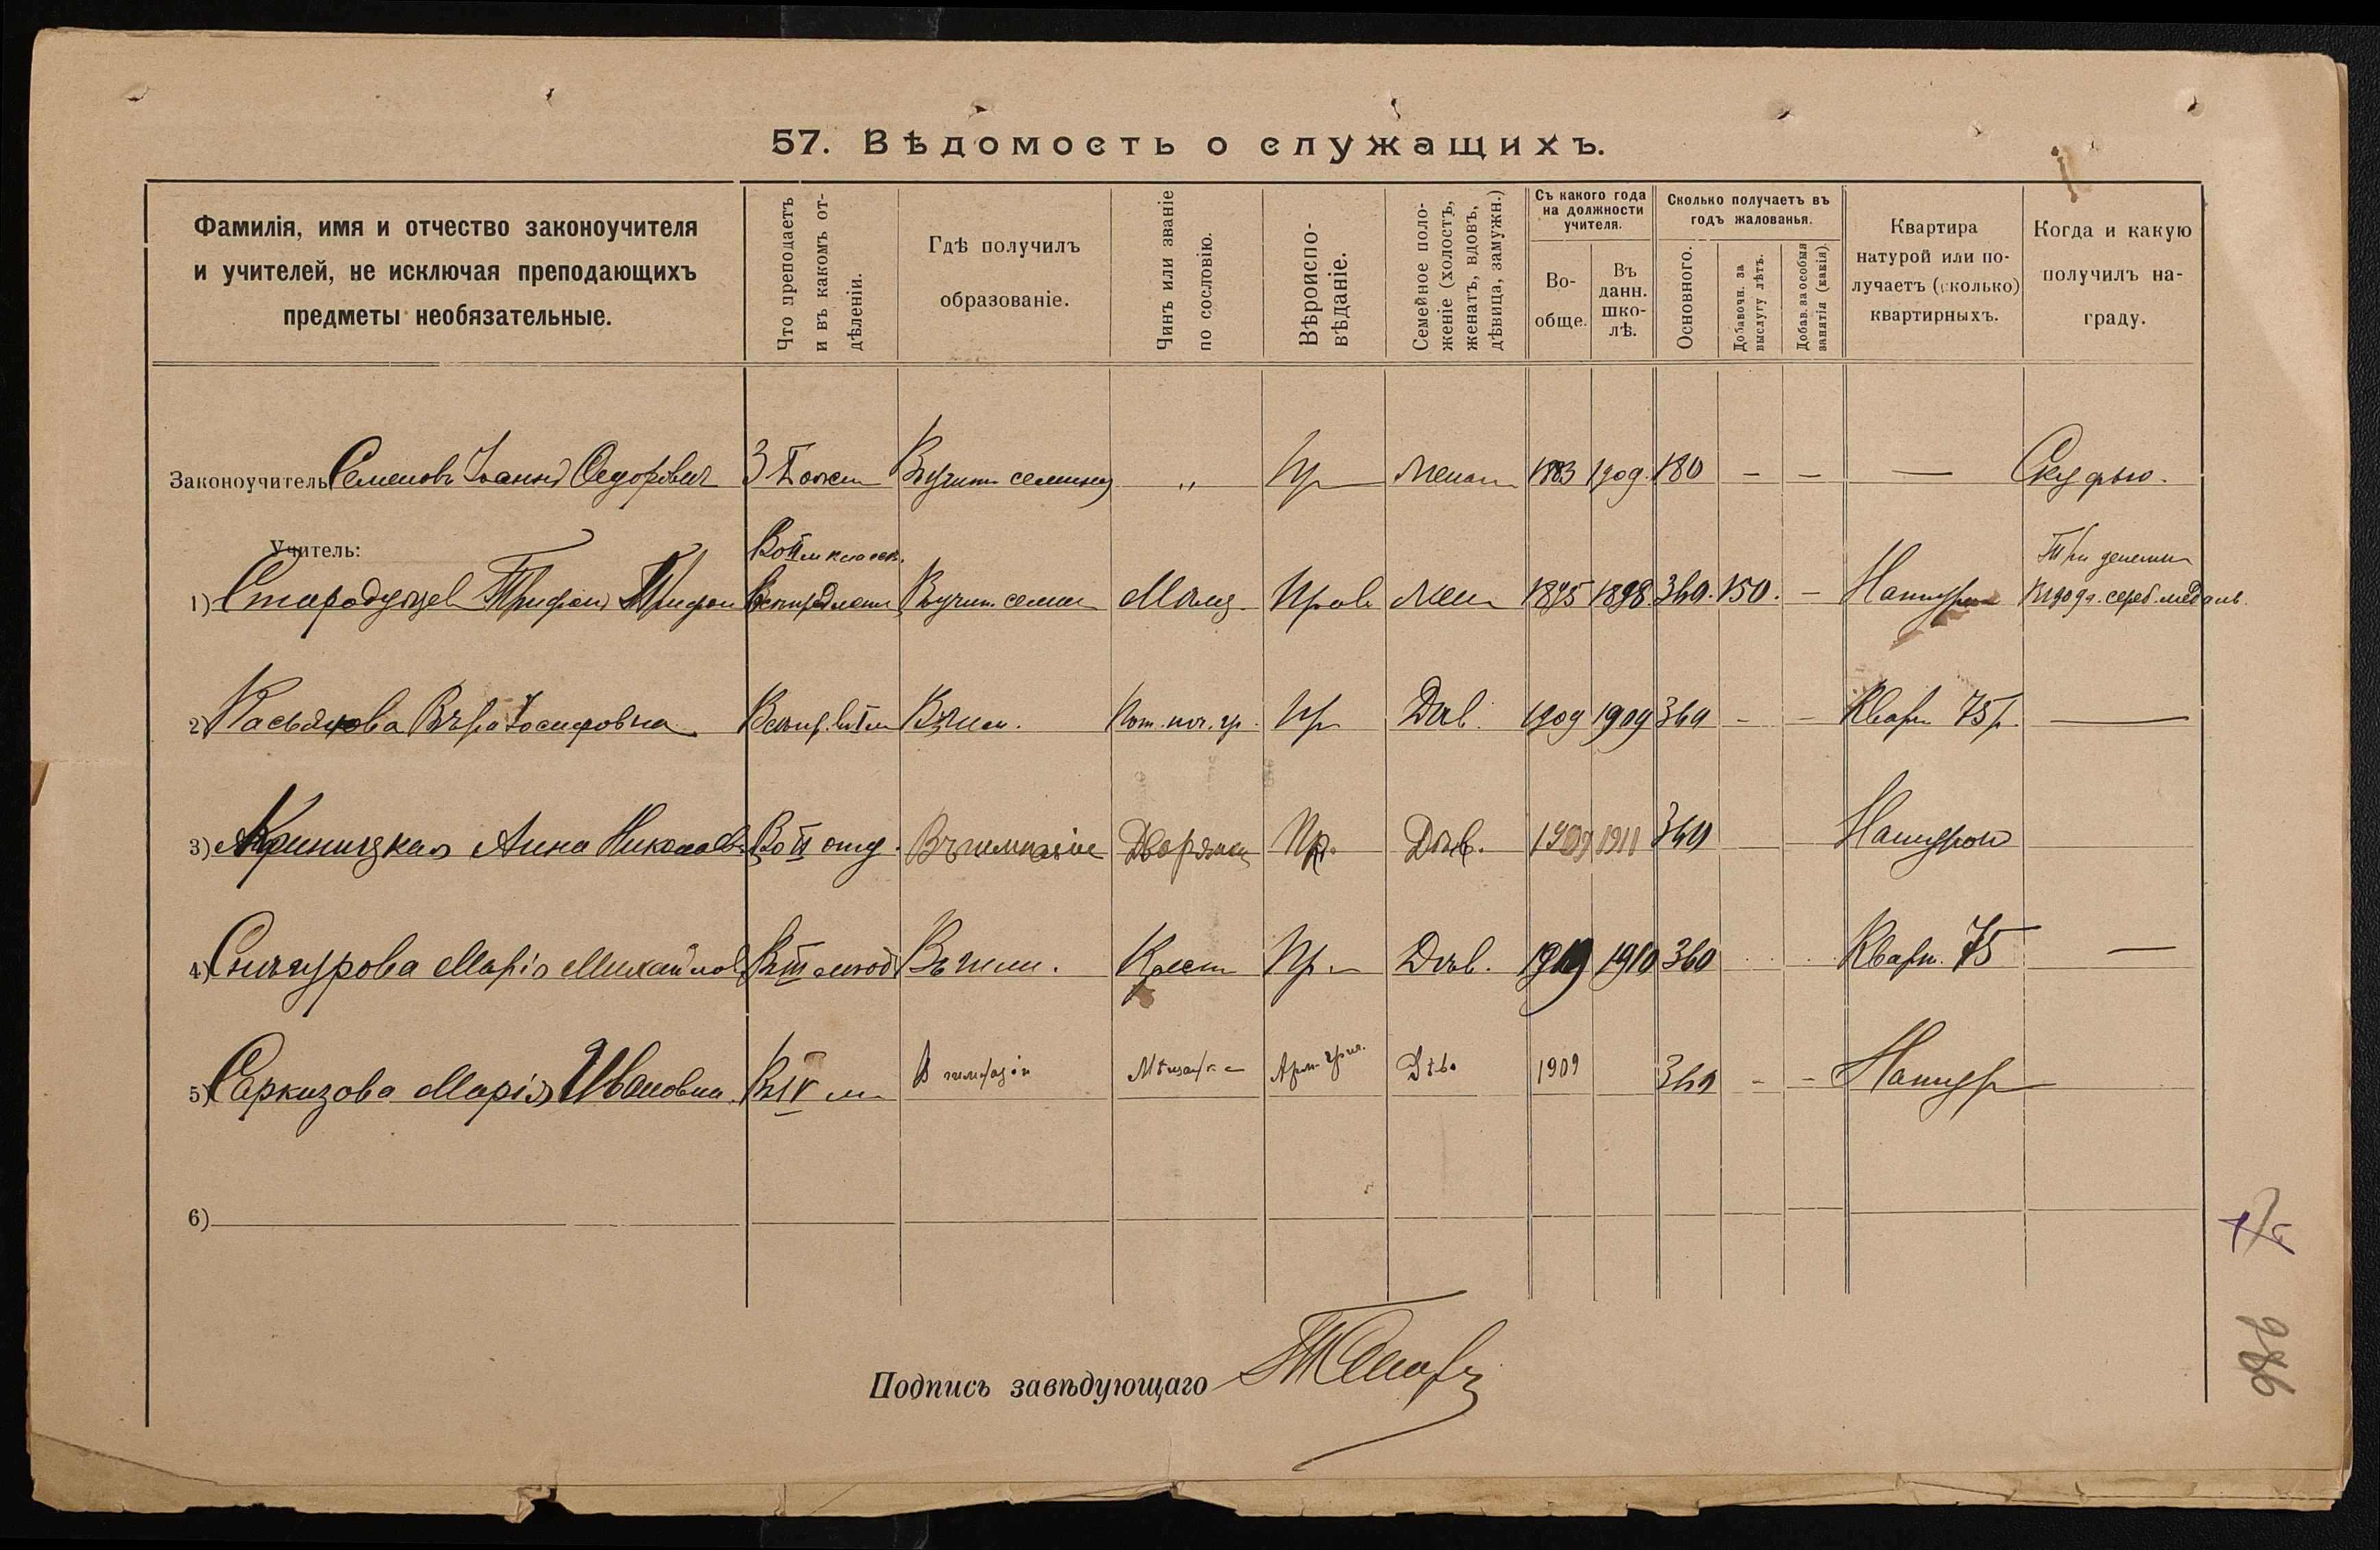 57. Вѣдомость о служащихъ.
Фамилія, имя и отчество законоучителя
и учителей, не исключая преподающихъ
предметы необязательные.
Что преподаетъ
и въ какомъ от-
дѣленіи.
Гдѣ получилъ
образованіе.
Чинъ или званіе
по сословію.
Вѣроиспо-
вѣданіе.
Семейное поло-
женіе (холостъ,
женатъ, вдовъ,
дѣвица, замужн.)
Съ какого года
на должности
учителя.
Во-
обще.
Въ
данн.
шко-
лѣ.
Сколько получаетъ въ
годъ жалованья.
Основного.
Добавочн. за
выслугу лѣтъ.
Добав. за особыя
занятія (какія).
Квартира
натурой или по-
лучаетъ (сколько)
квартирныхъ.
Когда и какую
получилъ на-
граду.
Законоучитель Семеновъ Іоаннъ Ѳедорович З Божій Въ учит семинар „ Пр Женат 1883 1909 180 — — — Скуфью.
Учитель:
Во II м класс. Три денежн
1) Трифон Трифон Въ учит. семин Прав Жен 1895 1898 360. 150. — Натурой сереб. медаль.
2) Касьянова Вѣра Іосифовна Въ гим. Пот. поч. гр. Пр Дѣв. 1909 1909 360 — — Кварт 75 р. —
3) Криницкая Анна Николаев Во II отд. Въ гимназіи Дворянк Пр. Дѣв. 1909 1911 360 Натурой
4) Марія Михайлов Въ III Въ гим. Крест Пр. Дѣв. 1910 360 Кварт. 75 —
5) Саркизова Марія Ивановна Въ IV м В гимназіи Мѣщанка Арм. григ. Дѣв. 1909 360 — — Натур
6)
Подпись завѣдующаго
986